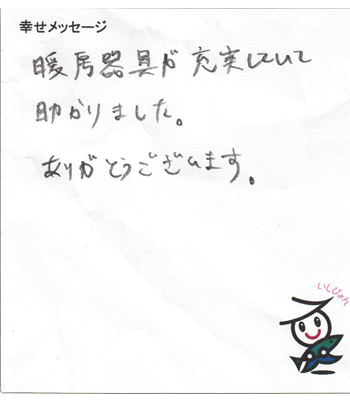 幸せメッセージ
暖房器具が充実していて
助かりました。
ありがとうございます。
いしぴょん